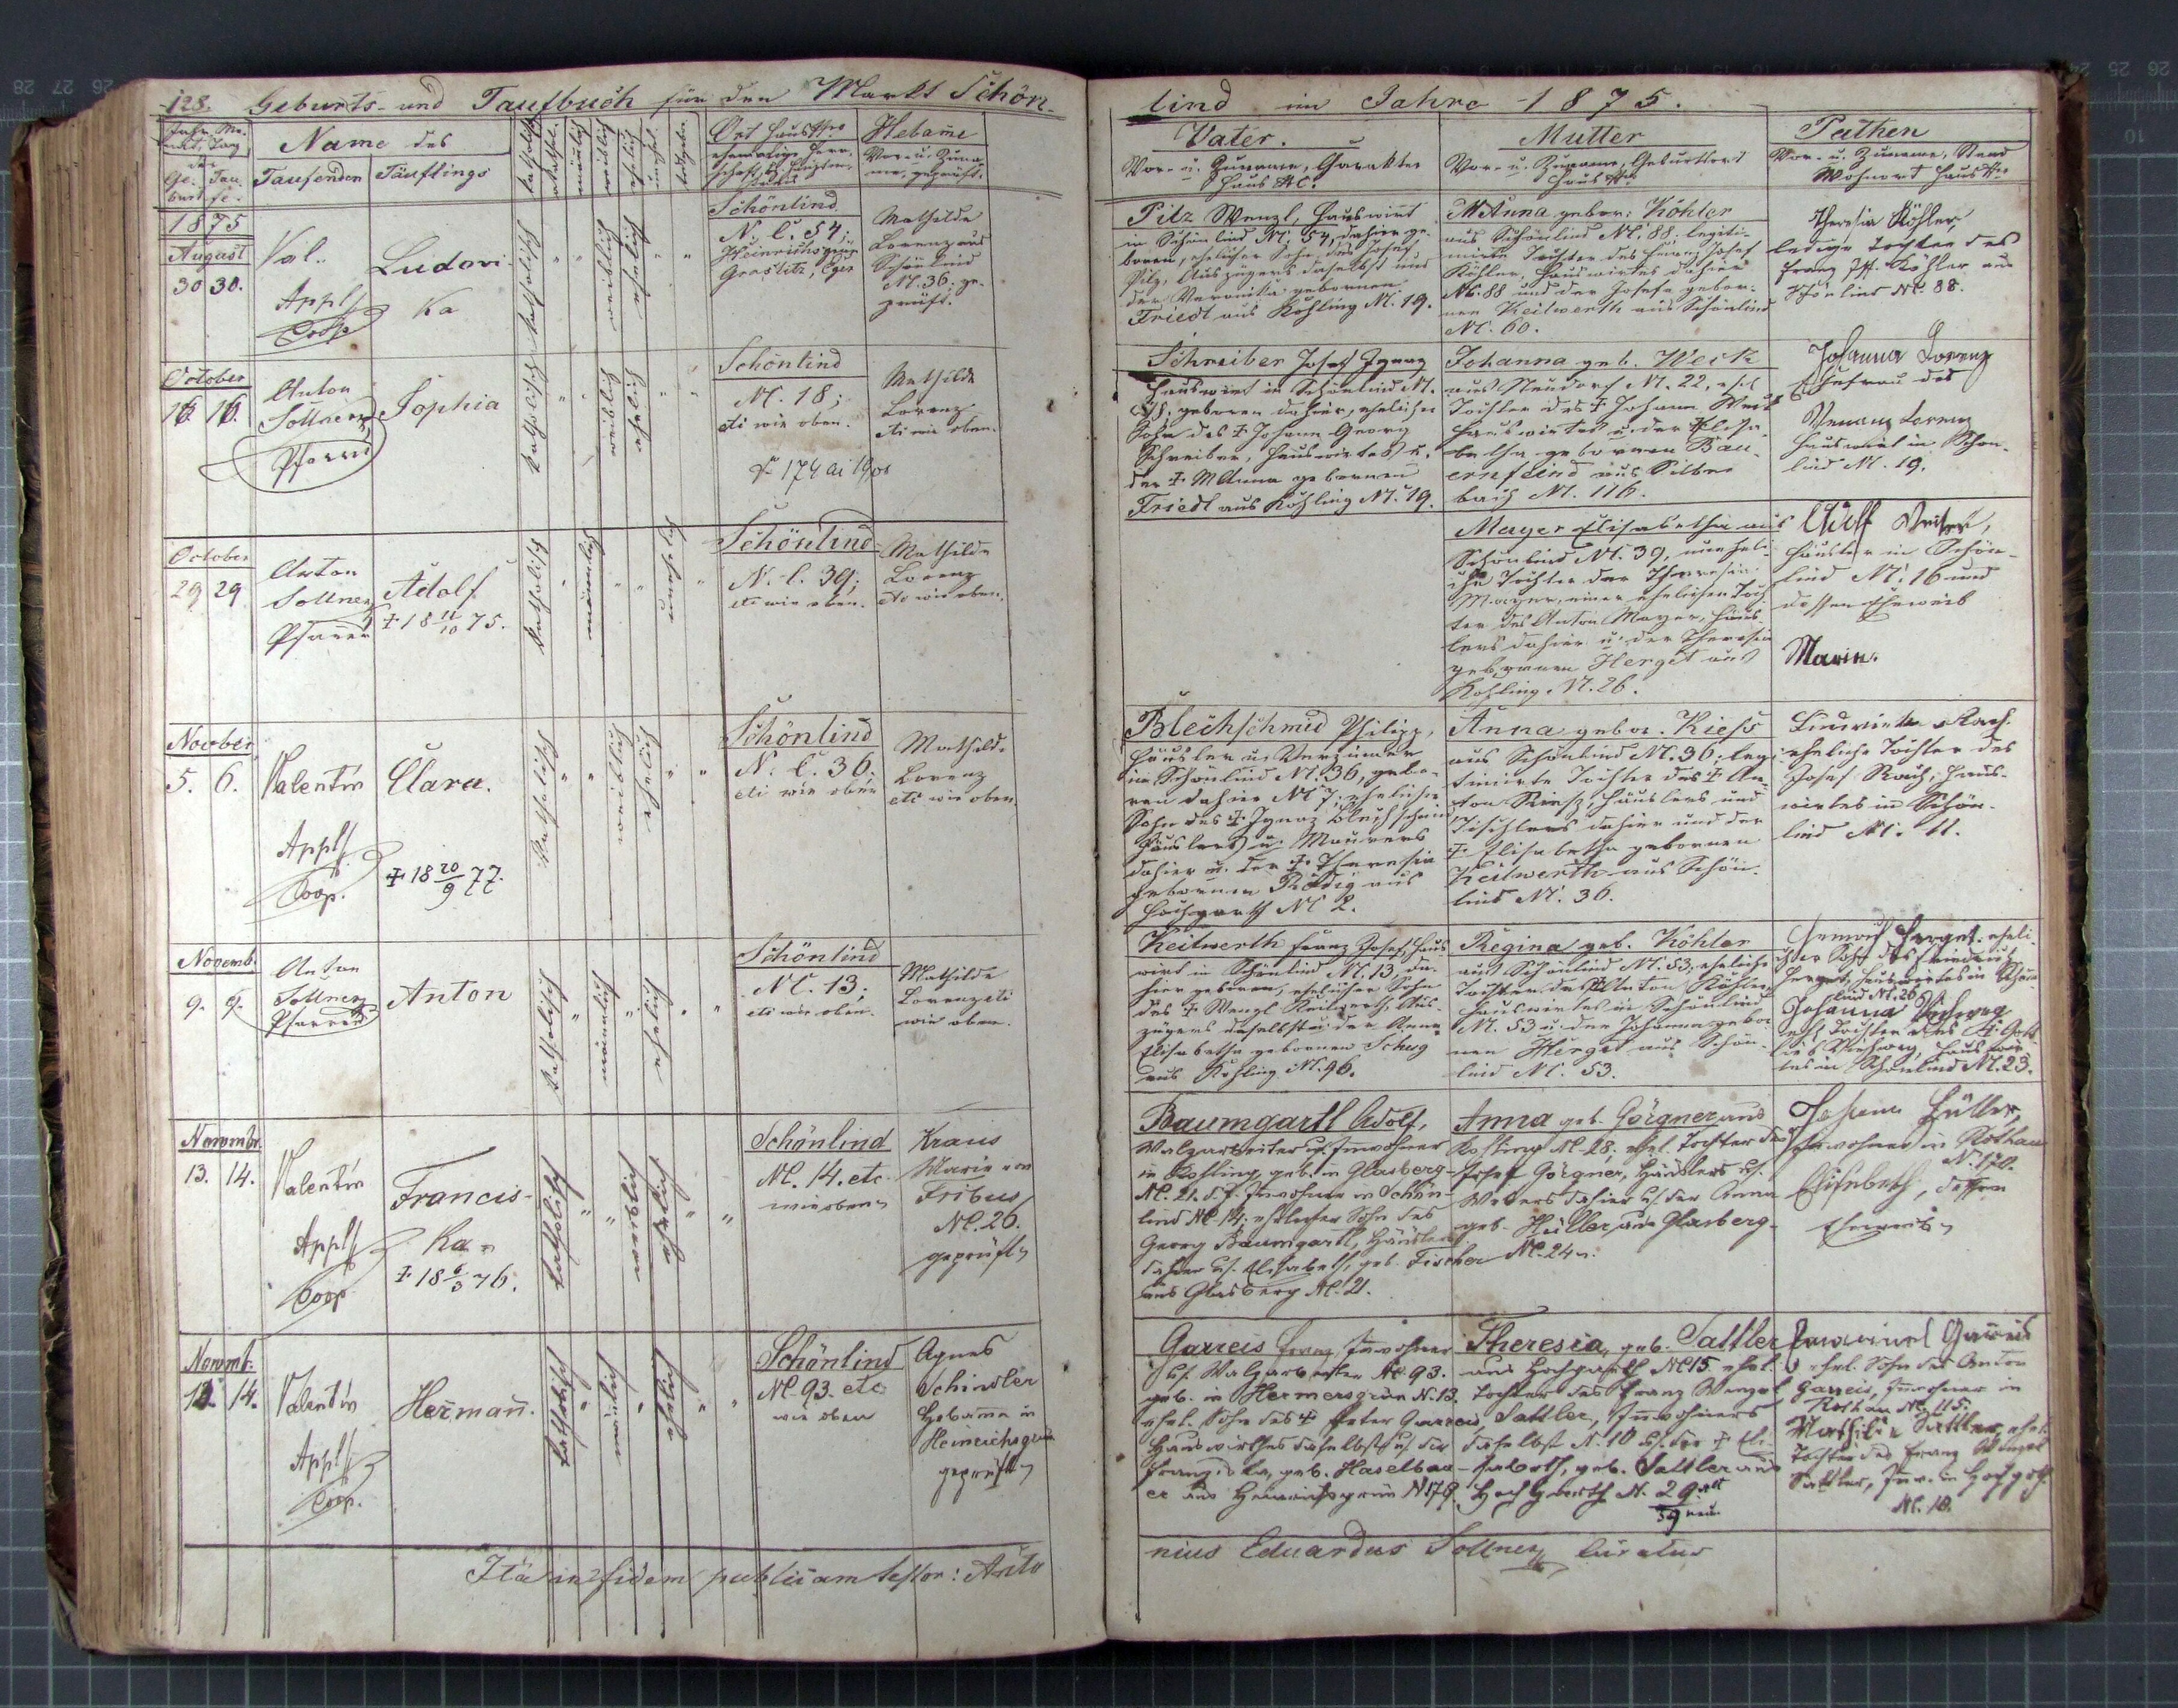 128. Geburts- und Taufbuch für den Markt Schön-
lind im Jahre 1875.
Jahr, Mo-
nat, Tag
der
Ge-
burt
Tau-
fe
Name des
Taufenden
Täuflings
katholisch
akathol.
männlich
weiblich
ehelich
unehel.
Ort Haus Nro
Hebame
Vor- u. Zuna-
me, geprüft.
Vater.
Vor- u. Zuname, Charakter
Haus NC.
Mutter
Vor- u. Zuname, Geburtsort
Haus Nro
Pathen
Vor- u. Zuname, Stand
Wohnort Haus Nro
1875
August
30 30.
Val.
Appl
Coop
Ludovi-
ka
katholisch
weiblich
ehelich
Schönlind
N. C. 54;
Heinrichsgrün
Graslitz, Eger
Mathilde
Lorenz aus
Schönlind
NC. 36. ge-
prüft.
Pilz Wenzl, Hauswirt
in Schönlind NC. 54, dahier ge-
boren, ehelicher Sohn des Josef
Pilz, Auszüglers daselbst und
der Veronika gebornen
Friedl aus Kohling NC. 19.
MAnna gebor. Köhler
aus Schönlind NC. 88. legiti-
mirte Tochter des Franz Josef
Köhler, Hauswirtes dahier
NC. 88 und der Josefa gebor-
nen Keilwerth aus Schönlind
NC. 60.
Theresia Köhler,
ledige Tochter des
Franz Jos. Köhler aus
Schönlind NC. 88.
October
16. 16.
Anton
Sollner
Pfarrer
Sophia
katholisch
weiblich
ehelich
Schönlind
NC. 18;
etc wie oben.
174 ai 1901
Mathilde
Lorenz
etc wie oben.
Schreiber Josef Ignaz
Hauswirt in Schönlind NC.
18. geboren dahier, ehelicher
Sohn des ☩ Johann Georg
Schreiber, Hauswirtes u.
der ☩ MAnna gebornen
Friedl aus Kohling NC. 19.
Johanna geb. Weck
aus Neudorf NC. 22, ehel.
Tochter des ☩ Johann Weck
Hauswirtes u. der Elisa-
betha gebornen Bau-
ernfeind aus Silber-
bach NC. 116.
Johanna Lorenz
Ehefrau des
Lorenz
Hauswirt in Schön-
lind NC. 19.
October
29 29
Anton
Sollner
Pfarrer
Adolf
☩ 18 11/10 75.
katholisch
männlich
unehelich
Schönlind
N. C. 39;
etc wie oben.
Mathilde
Lorenz
etc wie oben.
Mayer Elisabetha aus
Schönlind NC. 39, uneheli-
che Tochter der Theresia
Mayer, einer ehelichen Toch-
ter des Anton Mayer, Häus-
lers dahier u. der Theresia
gebornen Herget aus
Kohling NC. 26.
Adolf
Häusler in Schön-
lind NC. 16 und
dessen Eheweib
Marie.
Novber
5. 6.
Valentin
Appl
Coop.
Clara.
☩ 18 20/9 77.
katholisch
weiblich
ehelich
Schönlind
N. C. 36;
etc wie oben
Mathilde
Lorenz
etc wie oben
Blechschmid Philipp,
Häusler u. Verzinner
in Schönlind NC. 36, gebo-
ren dahier NC 7; ehelicher
Sohn des ☩ Ignaz Blechschmid
Häuslers u. Maurers
dahier u. der ☩ Theresia
gebornen Rödig aus
Hochgarth NC 2.
Anna gebor. Kiess
aus Schönlind NC. 36; legi-
timirte Tochter des ☩ An-
ton Kiess, Häuslers und
Tischlers dahier und der
☩ Elisabetha gebornen
Keilwerth aus Schön-
lind NC. 36.
eheliche Tochter des
Josef Rach, Haus-
wirtes in Schön-
lind NC. 11.
Novemb.
9. 9.
Anton
Sollner
Pfarrer
Anton
katholisch
männlich
ehelich
Schönlind
NC. 13;
etc wie oben.
Mathilde
Lorenz etc
wie oben.
Keilwerth Franz Josef, Haus-
wirt in Schönlind NC. 13, da-
hier geboren, ehelicher Sohn
des ☩ Wenzl Keilwerth, Aus-
züglers daselbst u. der Anna
Elisabetha gebornen Schug
aus Kohling NC. 96.
Regina geb. Köhler
aus Schönlind NC. 53; eheliche
Tochter des Anton Köhler,
Hauswirtes in Schönlind
NC. 53 u. der Johanna gebor-
nen Herget aus Schön-
lind NC. 53.
Herget, eheli-
cher Sohn des Friedrich
Herget, Hauswirtes in Schön-
lind NC. 26
Johanna
Tochter des
Hauswir-
tes in Schönlind NC. 23.
Novembr.
13. 14.
Valentin
Appl
Coop
Francis-
ka
☩ 18 6/3 76.
katholisch
weiblich
ehelich
Schönlind
NC. 14. etc
wie oben
Kraus
Marie von
Fribus
NC. 26.
geprüft
Baumgartl Adolf,
Walzarbeiter u. Inwohner
in Kohling, geb. in Glasberg
NC. 21. d. Z. Inwohner in Schön-
lind NC. 14; ehelicher Sohn des
Georg Baumgartl, Häuslers
dahier u. Elisabeth, geb. Fischer
aus Glasberg NC. 21.
Anna geb. Görgner aus
Kohling NC. 28; ehel. Tochter des
Josef Görgner, Häuslers u.
Webers dahier u. der Anna
geb. Hüller, aus Glasberg
NC. 24.
Johann Hüller,
Inwohner in Rothau
N. 170.
Elisabeth, dessen
Eheweib
Novmb.
12. 14.
Valentin
Appl
Coop.
Hermann.
katholisch
männlich
ehelich
Schönlind
NC. 93. etc
wie oben
Agnes
Schindler
Hebamme in
Heinrichsgrün
geprüft
Garreis Franz, Inwohner
u. Walzarbeiter NC. 93.
geb. in Hermersgrün N. 13.
ehel. Sohn des ☩ Peter Garreis
Hauswirthes daselbst u. der
Franziska, geb. Haselbau-
er aus Heinrichsgrün N 178.
Theresia, geb. Sattler
aus Hochgarth NC 15. ehel.
Tochter des Franz Wenzel
Sattler, Inwohners
daselbst N. 10 u. der ☩ Eli-
sabeth, geb. Sattler aus
Hochgarth N. 29 alt
59 neu
Emanuel Garreis
ehel. Sohn des Anton
Garreis, Inwohner in
Rothau NC. 115.
Mathilde Sattler, ehel.
Tochter des Franz Wenzel
Sattler, Inw. in Hochgarth
NC. 10.
Ita in fidem publicam testor: Anto-
nius Eduardus Sollner Curatus